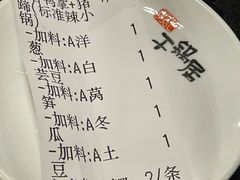 (鸭掌+猪
蹄(标准辣小
锅
-加料:A洋 1
葱
-加料:A白 1
芸豆
-加料:A莴 1
笋
-加料:A冬 1
瓜
-加料:A土 1
豆
2/条